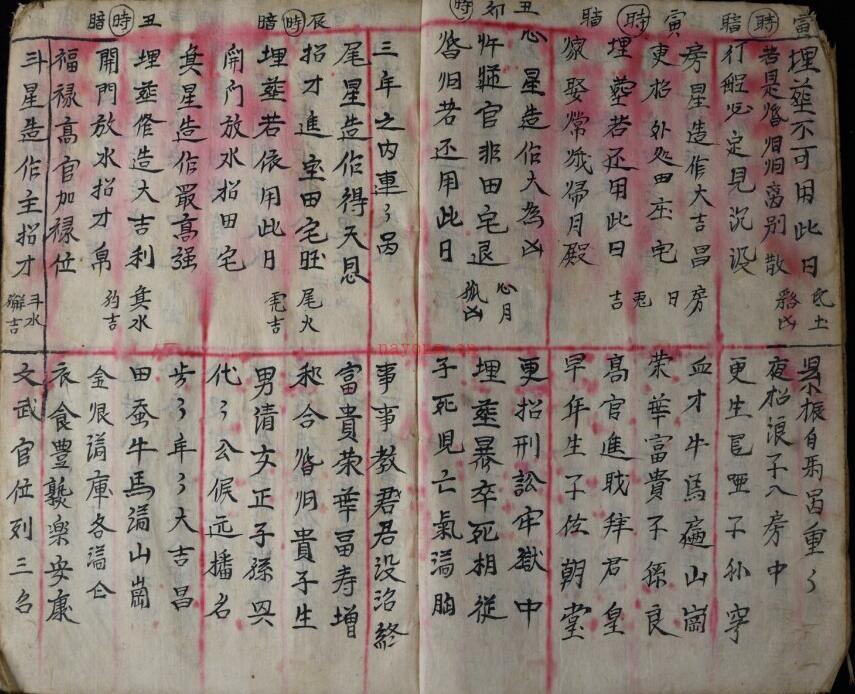 寅 時 暗
寅 時 暗
丑 卯 時
辰 時 暗
丑 時 暗
埋葬不可用此日
氐土
重々
若是婚归归离别散
貉凶
夜招浪子入房中
行船必定見沉没
更生 哑子孙穷
房星造作大吉昌
房日兎吉
血才牛馬遍山崗
更招外处田庄宅
荣華富貴子孫良
埋葬若还用此日
高官進職拜君皇
嫁娶常娥归月殿
早年生子佐朝堂
心星造作大為凶
心月狐凶
更招刑訟牢獄中
忤逆官非田宅退
埋葬暴卒死相從
婚归若还用此日
子死児亡氣滿胸
三年之内連々咼
事事教君君没治終
尾星造作得天恩
尾火虎吉
富貴荣華畐寿增
招才進宝田宅旺
和合婚归貴子生
埋葬若依用此日
男清女正子孫兴
開門放水招田宅
代々公侯远播名
箕星造作最高强
箕水豹吉
步々年々大吉昌
埋葬修造大吉利
田蚕牛馬滿山崗
開門放水招才帛
金银滿庫谷滿仓
福禄高官加禄位
衣食豊 樂安康
斗星造作主招才
斗水獬吉
文武官位列三台